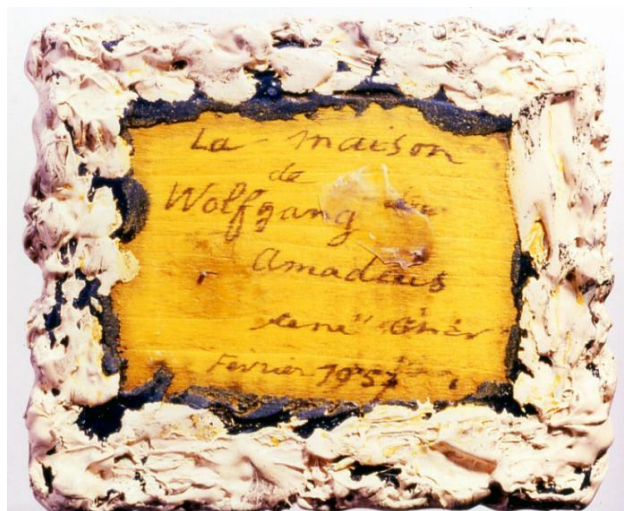 La maison
de
Wolfgang
Amadeus
Février 195